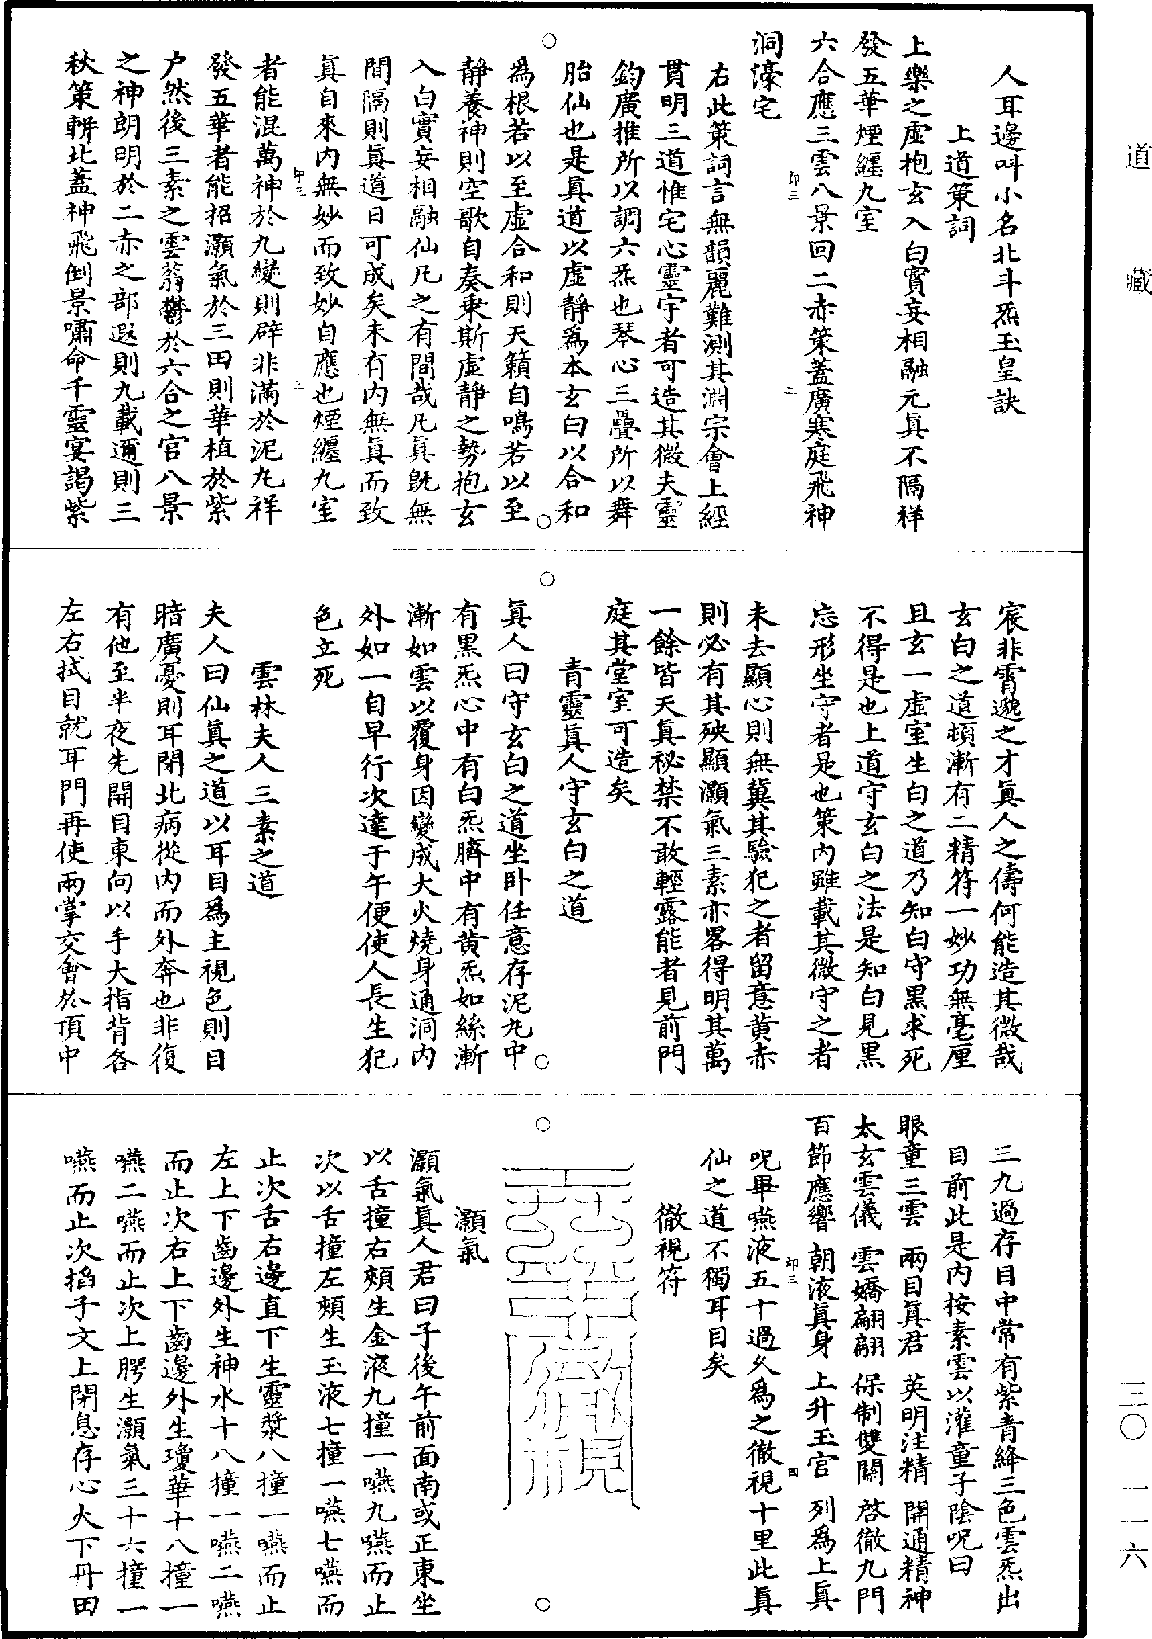 道藏
三〇 一一六
人耳邊叫小名北斗炁玉皇訣
上道策詞
上樂之虛抱玄入白實妄相融元眞不隔祥
發五華煙纏九室
六合應三雲八景回二赤策蓋廣寒庭飛神
洞濠宅
右此策詞言無韻麗難測其淵宗會上經
貫明三道惟宅心靈宇者可造其微夫靈
鈞廣推所以調六炁也琴心三疊所以舞
胎仙也是眞道以虛靜爲本玄白以合和
爲根若以至虛合和則天籟自鳴若以至
靜養神則空歌自奏乗斯虛靜之勢抱玄
入白實妄相融仙凡之有間哉凡眞旣無
間隔則眞道日可成矣未有内無眞而致
眞自來内無妙而致妙自應也煙纏九室
者能混萬神於九變則辟非滿於泥丸祥
發五華者能招灝氣於三田則華植於紫
户然後三素之雲蓊鬱於六合之官八景
之神朗明於二赤之部遐則九載邇則三
秋策輧北蓋神飛倒景嘯命千靈宴謁紫
宸非霄邈之才眞人之儔何能造其微哉
玄白之道頓漸有二精符一妙功無毫厘
且玄一虛室生白之道乃知白守黑求死
不得是也上道守玄白之法是知白見黑
忘形坐守者是也策内雖載其微守之者
未去顯心則無冀其驗犯之者留意黄赤
則必有其殃顯灝氣三素亦畧得明其萬
一餘皆天眞祕禁不敢輕露能者見前門
庭其堂室可造矣
青靈眞人守玄白之道
眞人曰守玄白之道坐卧任意存泥丸中
有黑炁心中有白炁臍中有黄炁如絲漸
漸如雲以覆身因變成大火燒身通洞内
外如一自早行次達于午便使人長生犯
色立死
雲林夫人三素之道
夫人曰仙眞之道以耳目爲主視色則目
暗廣憂則耳閉北病從内而外奔也非復
有他至半夜先開目東向以手大指背各
左右拭目就耳門再使兩掌交會於頂中
三九過存目中常有紫青絳三色雲炁出
目前此是内按素雲以灌童子陰呪曰
眼童三雲 兩目眞君 英明注精 開通精神
太玄雲儀 雲嬌翩翩 保制雙關 啓徹九門
百節應響 朝液眞身 上升玉宮 列爲上眞
呪畢嚥液五十過久爲之徹視十里此眞
仙之道不獨耳目矣
徹視符
灝氣
灝氣眞人君曰子後午前面南或正東坐
以舌撞右頰生金液九撞一嚥九嚥而止
次以舌撞左頰生玉液七撞一嚥七嚥而
止次舌右邊直下生靈漿八撞一嚥而止
左上下齒邊外生神水十八撞一嚥二嚥
而止次右上下齒邊外生瓊華十八撞一
嚥二嚥而止次上腭生灝氣三十六撞一
嚥而止次搯子文上閉息存心火下丹田